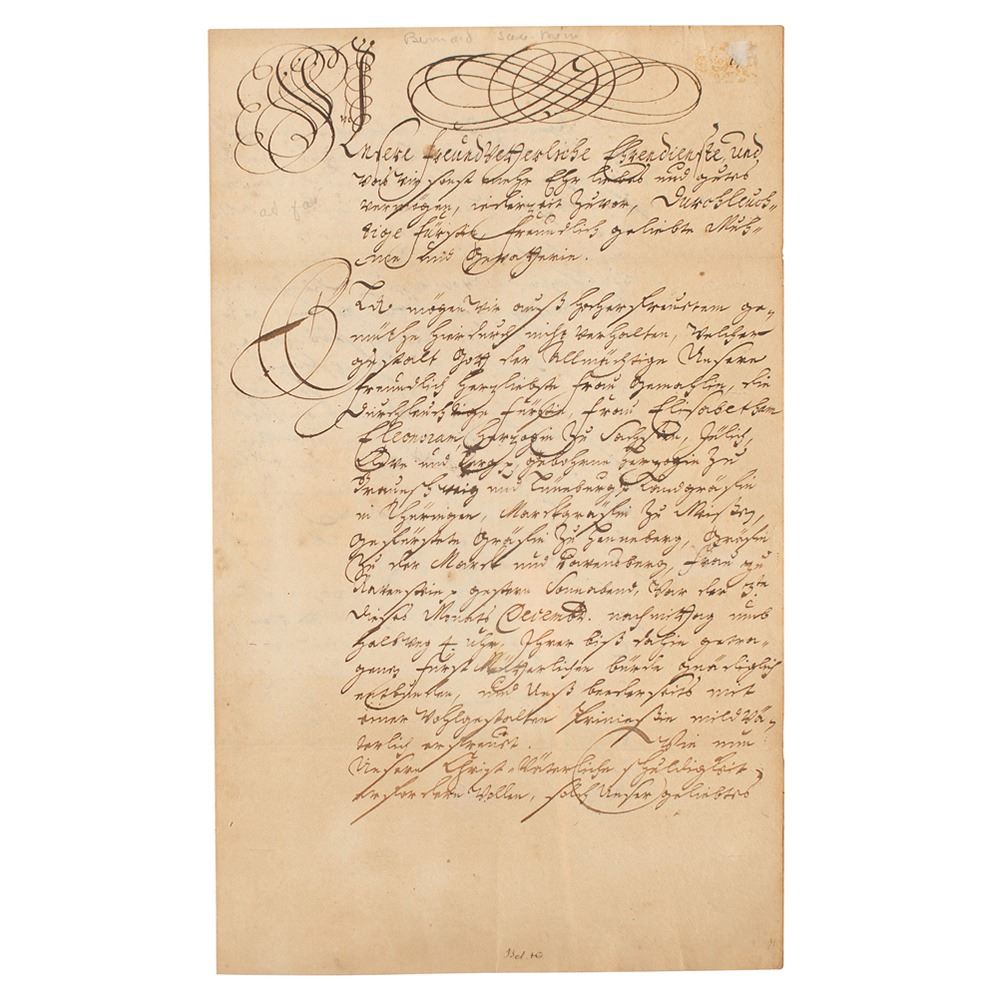 Bernard Sax. Mein
Unsere freundvetterliche Ehrendienste, und
was wir sonst mehr Ehr liebes und gutes
vermögen, iederzeit zuvor, Durchleuch-
tige Fürstin, freundlich geliebte Muh-
me und Gevatterin.
Ew. Ld. mögen wir auß hocherfreutem ge-
müthe hierdurch nicht verhalten, welcher
gestalt Gott der Allmächtige Unsere
freundlich herzliebste Frau Gemahlin, die
Durchleuchtige Fürstin, Frau Elisabetham
Eleonoram Herzogin zu Sachsen, Jülich,
Cleve und Berg, gebohrne Herzogin zu
Braunschweig und Lüneburg, Landgräfin
in Thüringen, Marckgräfin zu Meißen,
gefürstete Gräfin zu Henneberg, Gräfin
zu der Marck und Ravensberg, Frau zu
Ravenstein, gestern Sonnabend, war der 3te
dieses Monats Decembr. nachmittag umb
halbweg 4. uhr, Ihrer biß dahin getra-
genen Fürst Mütterlichen bürde gnädiglich
entbunden, und Unß beederseits mit
einer wohlgestalten Prinzeßin mildvä-
terlich erfreuet. Wie nun
Unsere Christ-Väterliche schuldigkeit
erfordern wollen, solch Unser geliebtes